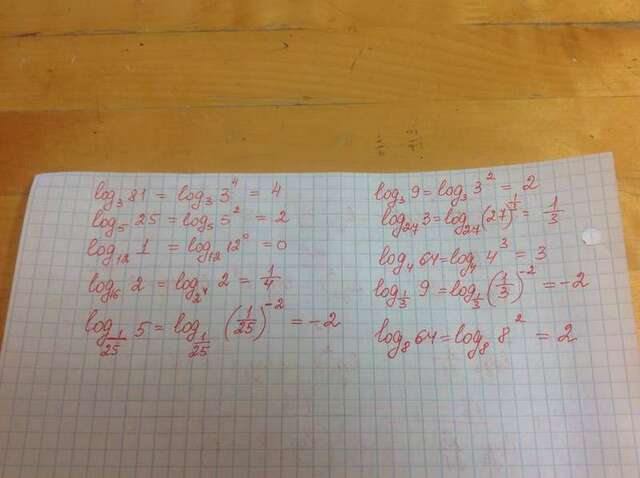 log₃ 81 = log₃ 3⁴ = 4
log₅ 25 = log₅ 5² = 2
log₁₂ 1 = log₁₂ 12⁰ = 0
log₁₆ 2 = log₂⁴ 2 = 1/4
log_(1/25) 5 = log_(1/25) (1/25)⁻² = -2
log₃ 9 = log₃ 3² = 2
log₂₇ 3 = log₂₇ (27)^(1/3) = 1/3
log₄ 64 = log₄ 4³ = 3
log_(1/3) 9 = log_(1/3) (1/3)⁻² = -2
log₈ 64 = log₈ 8² = 2